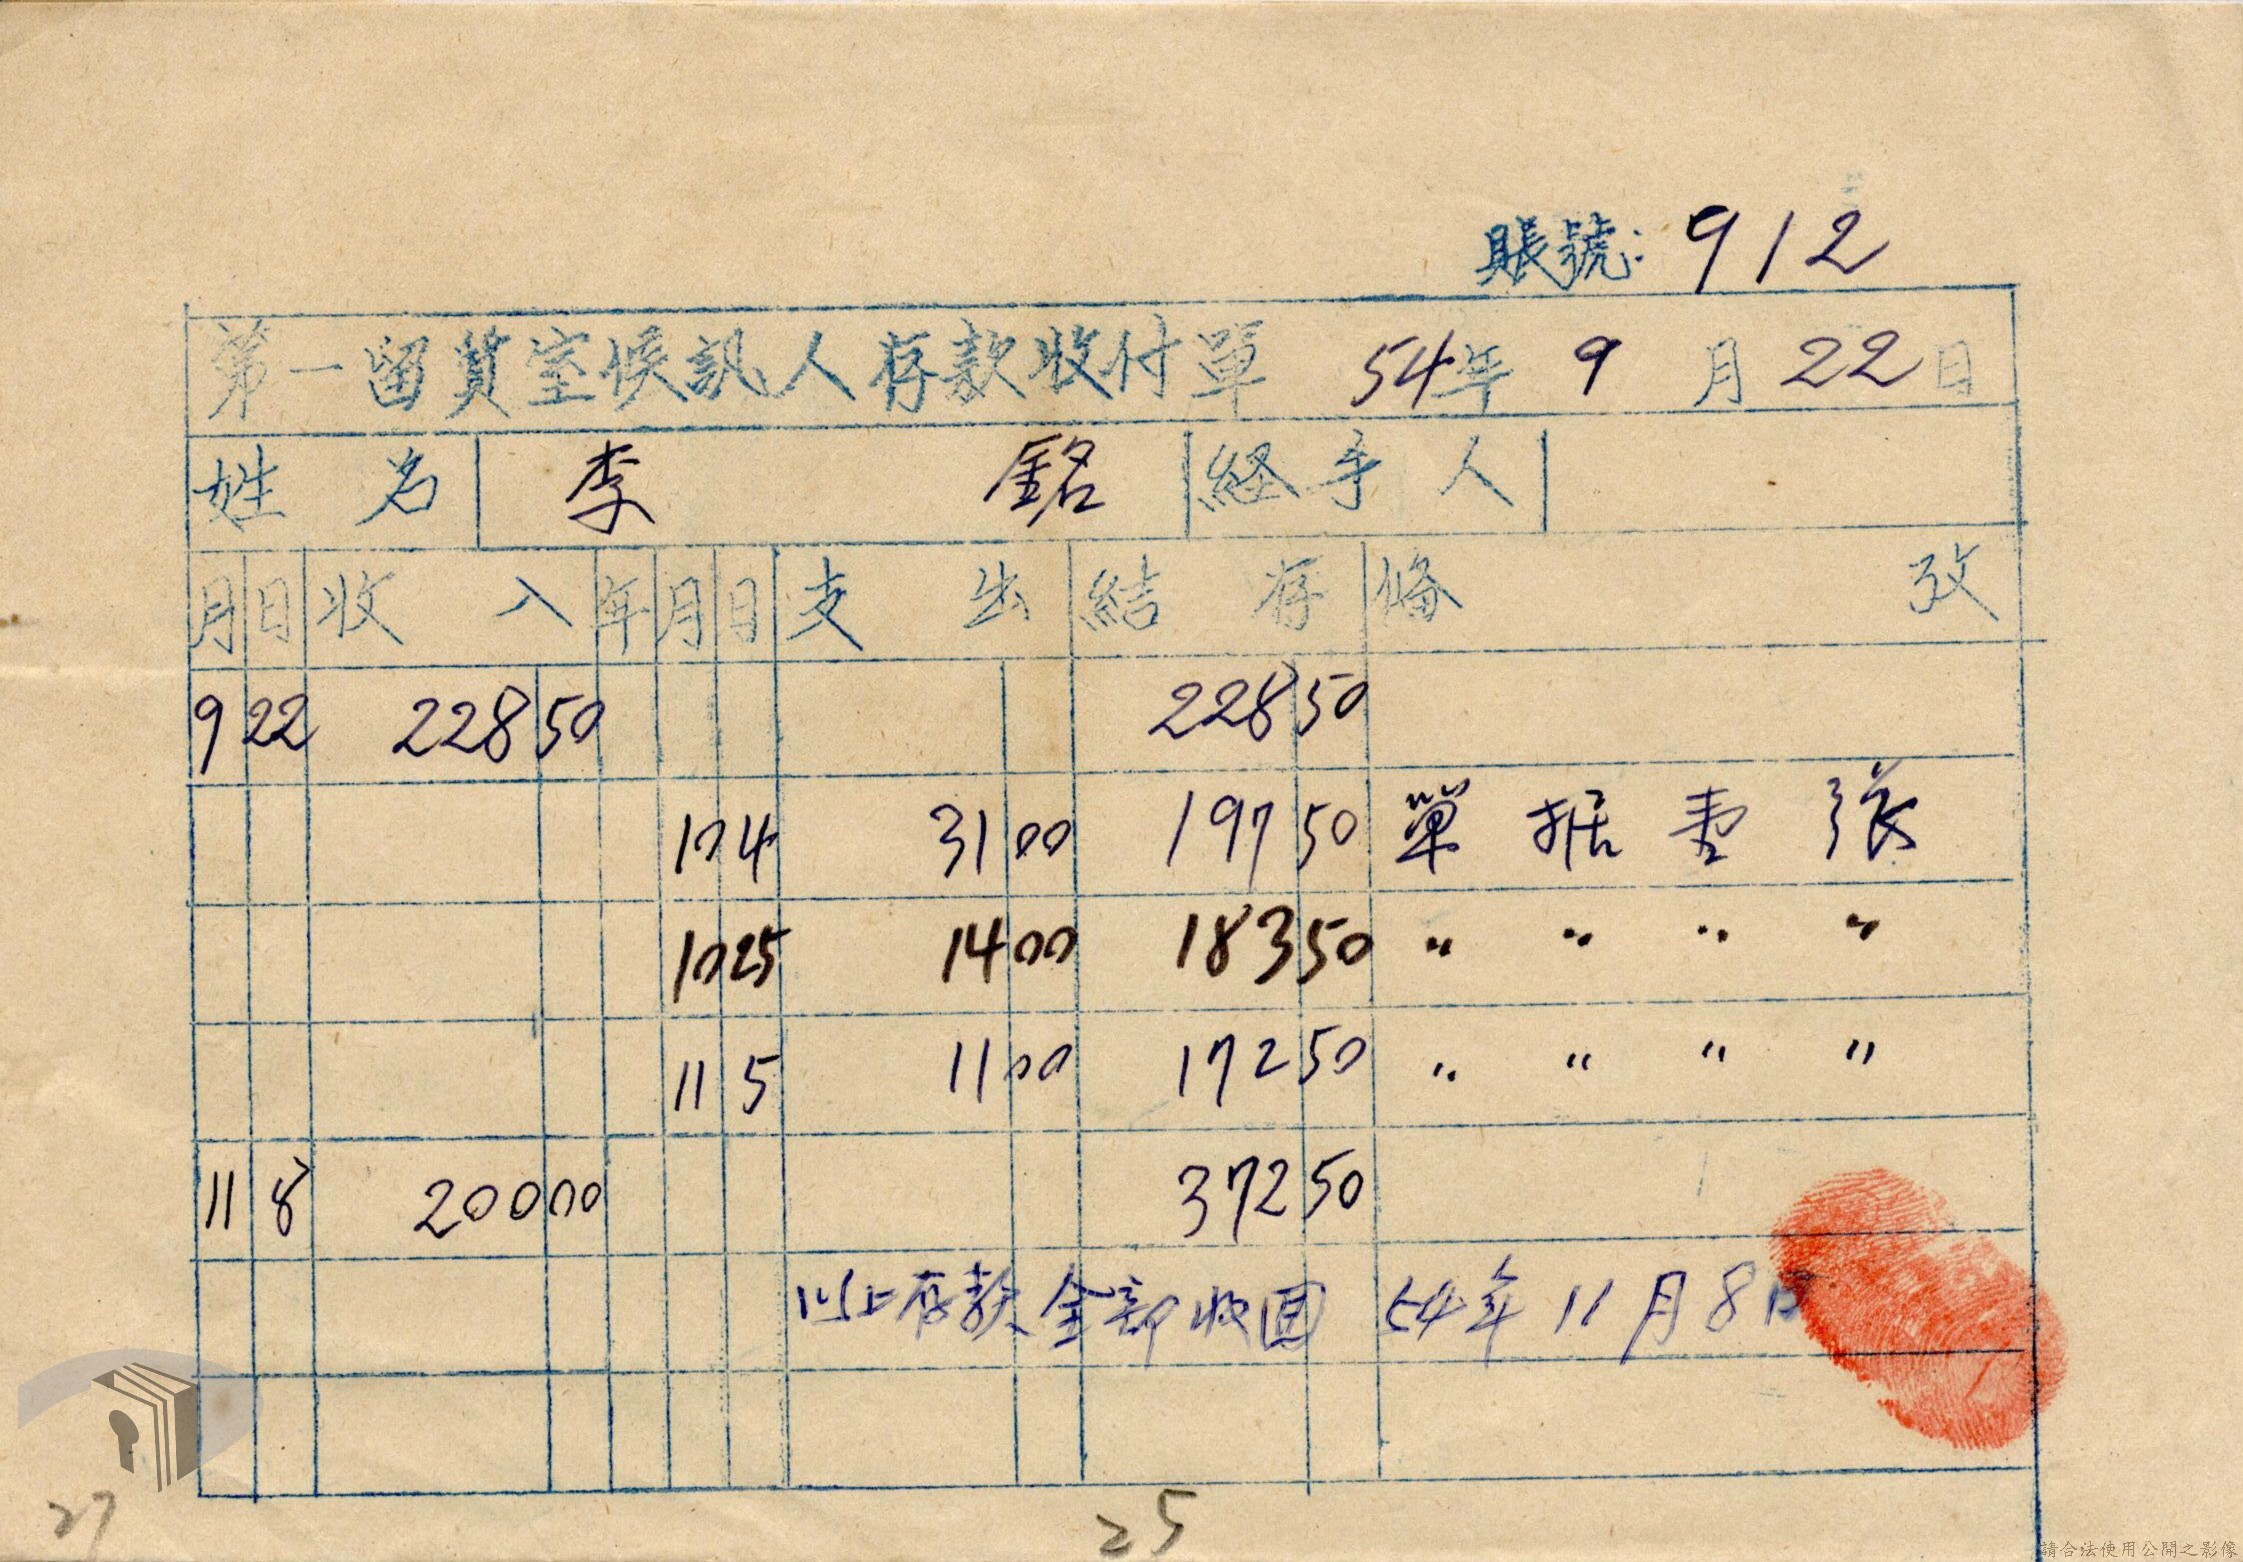 賬號: 912
第一留質室候訊人存款收付單 54年 9 月 22 日
姓名 李 銘 経手人
月 日 收入 年 月 日 支出 結存 俻攷
9 22 228 50 228 50
10 4 31 00 197 50 單据壹張
10 25 14 00 183 50 〃 〃 〃 〃
11 5 11 00 172 50 〃 〃 〃 〃
11 8 200 00 372 50
以上存款全部收回 54年11月8日
27
25
請合法使用公開之影像